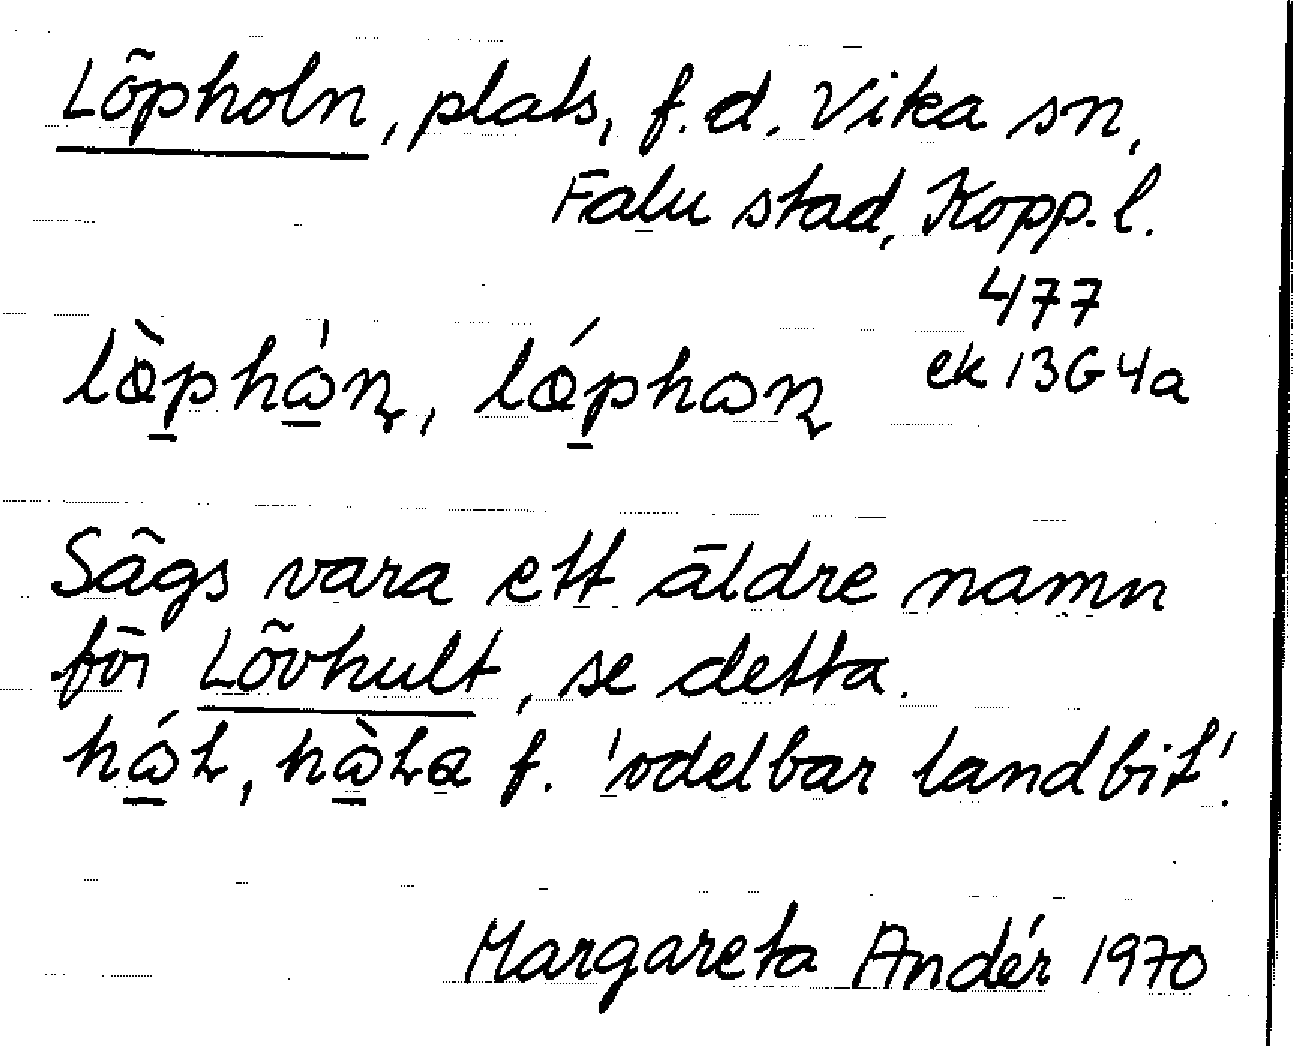 Löpholn, plats, f.d. Vika sn,
Falu stad, Kopp. l.
477
ek 13G4a
Sägs vara ett äldre namn
för Lövhult, se detta.
f. 'odelbar landbit'.
Margareta Andér 1970